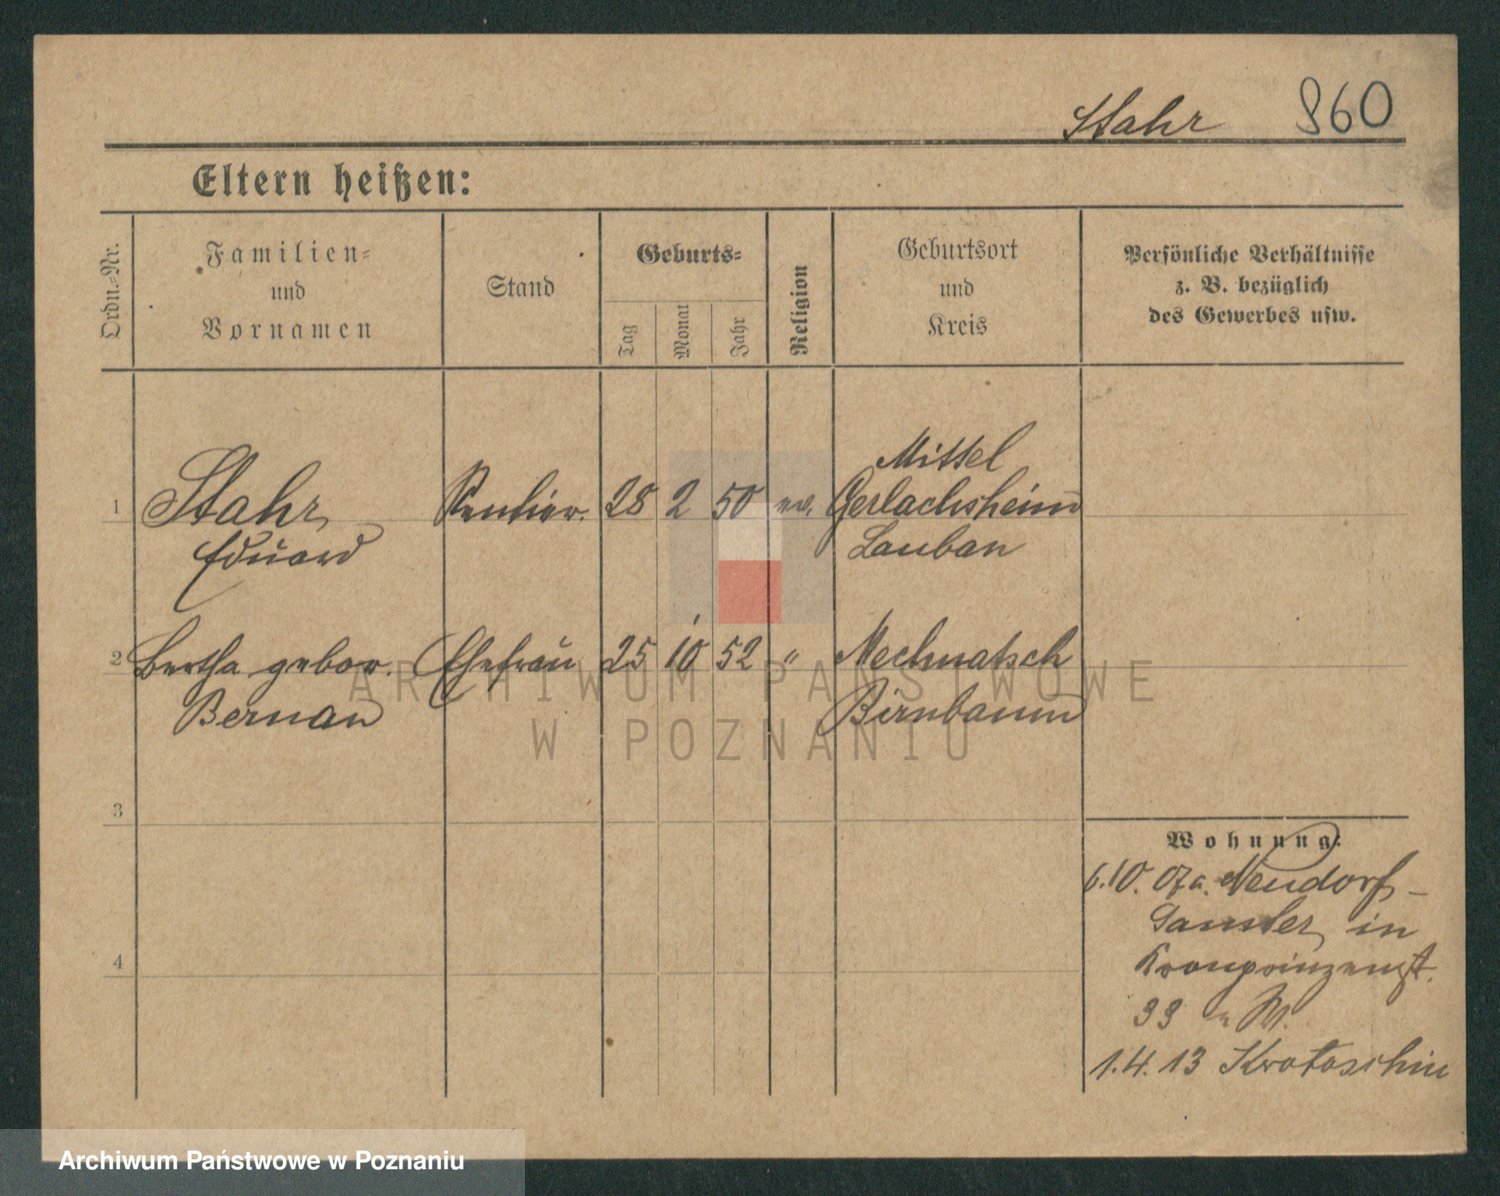 Stahr 860
Eltern heißen:
Ordn.-Nr.
Familien-
und
Vornamen
Stand
Geburts-
Tag
Monat
Jahr
Religion
Geburtsort
und
Kreis
Persönliche Verhältnisse
z. B. bezüglich
des Gewerbes usw.
1 Stahr Rentier. 28 2 50 ev. Mittel
Gerlachsheim
Eduard Lauban
2 Bertha gebor. Ehefrau 25 10 52 " Mechnatsch
Bernau Birnbaum
3
4
Wohnung:
6.10.07 a. Neudorf-
Samter, in
Kronprinzenst.
33
1.4.13 Krotoschin
ARCHIWUM PAŃSTWOWE
W POZNANIU
Archiwum Państwowe w Poznaniu